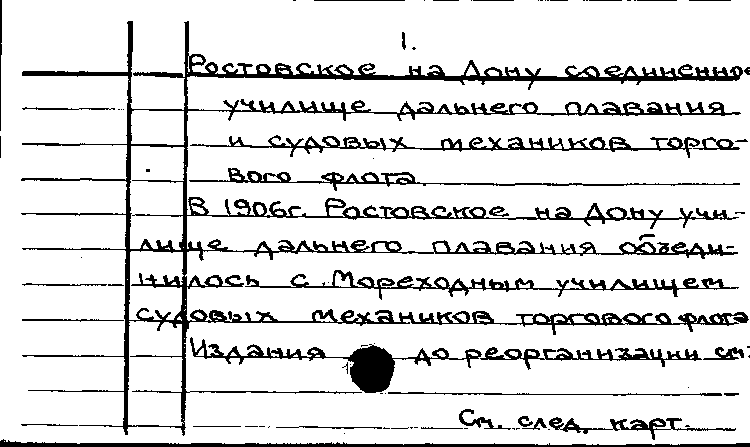 1.
Ростовское на Дону соединенное
училище дальнего плавания
и судовых механиков торго-
вого флота.
В 1906г. Ростовское на Дону учи-
лище дальнего плавания объеди-
нилось с Мореходным училищем
судовых механиков торгового флота
Издания до реорганизации см:
См. след. карт.